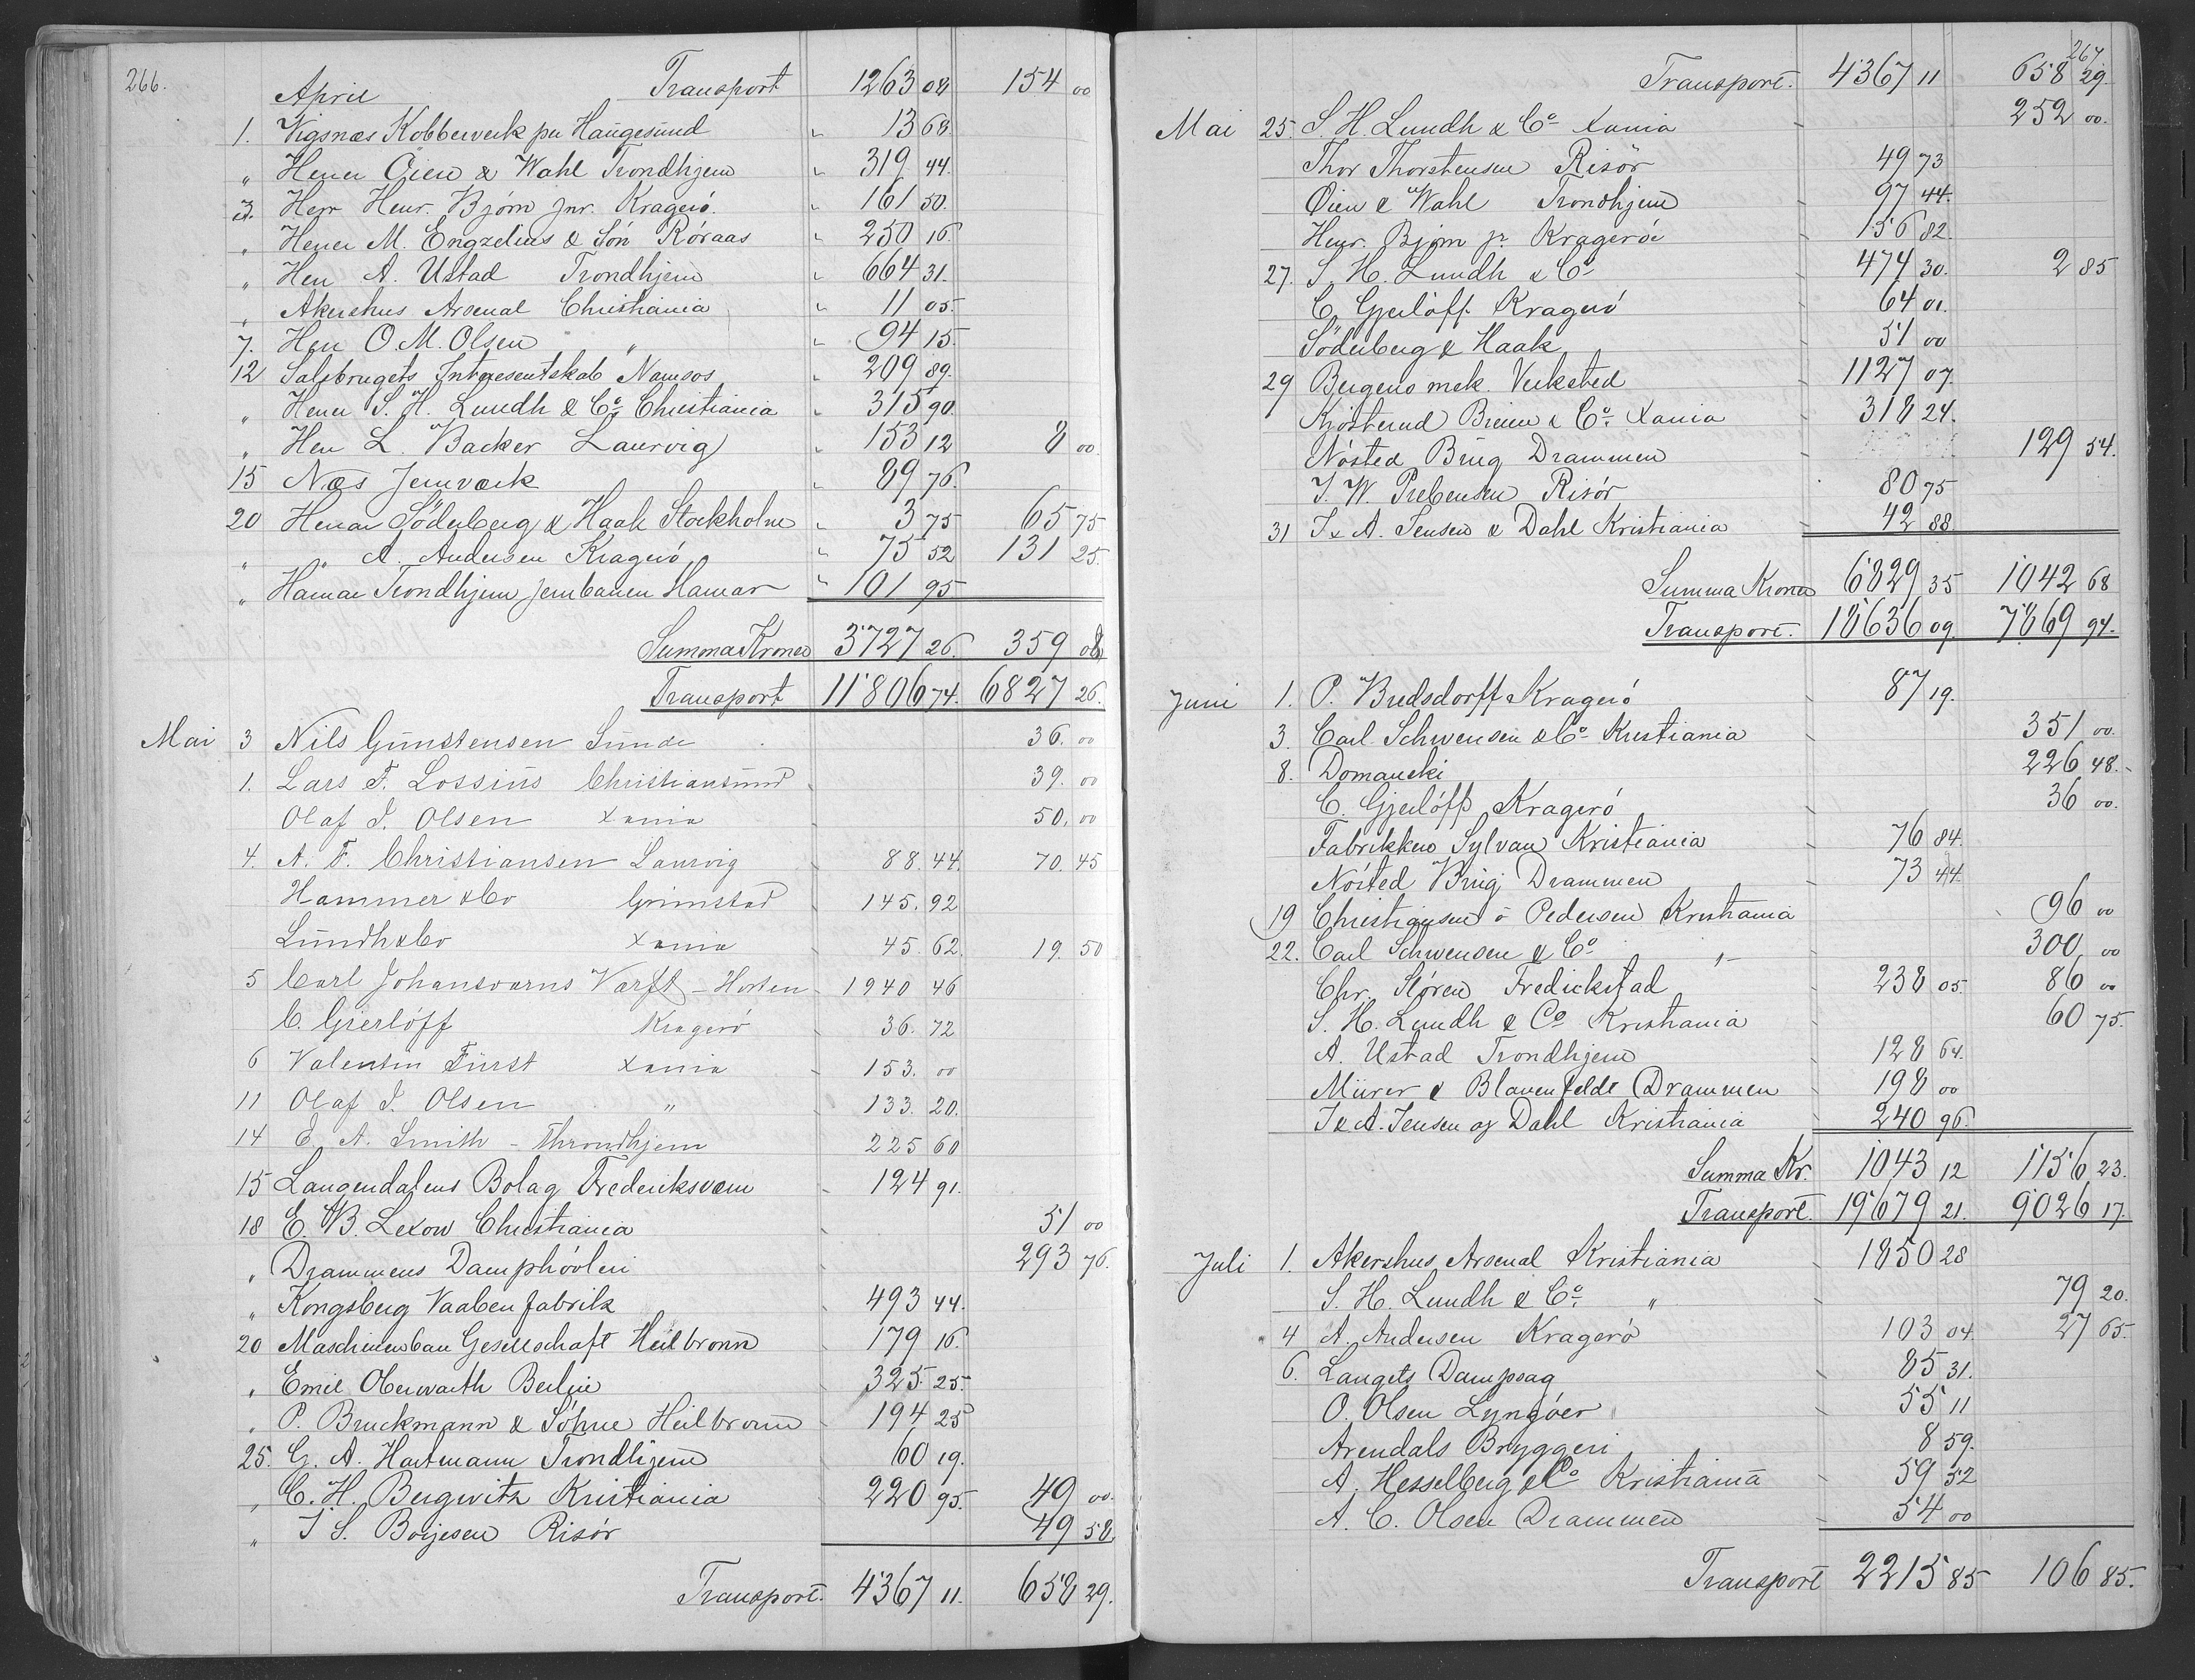 266.
April Transport 1263 08 154 00
1. Vigsnæs Kobberverk per Haugesund " 13 68.
" Herrer Öien & Wahl Trondhjem " 319 44.
3. Herr Henr. Bjørn jnr. Kragerö. " 161 50.
" Herrer M. Engzelius & Sön Röraas " 250 16.
" Herr A. Ustad Trondhjem " 664 31.
" Akershus Arsenal Christiania " 11 05.
7. Herr O. M. Olsen " " 94 15.
12 Salsbrugets Intresentskab Namsos " 209 89.
" Herrer S. H. Lundh & Co. Christiania " 315 90.
" Herr L. Backer Laurvig " 153 12 8 00.
15 Næs Jernværk " 89 76.
20 Herrar Söderberg & Haak Stockholm " 3 75 65 75
" " A. Andersen Kragerö " 75 52 131 25.
" Hamar Trondhjem Jernbanen Hamar " 101 95
Summa Kronor 3727 26. 359 08
Transport 11806 74. 6827 26.
Mai 3 Nils Gunstensen Sunde 36. 00
1. Lars F. Lossius Christiansund 39. 00
Olaf I. Olsen Xania 50. 00
4. A. F. Christiansen Laurvig 88. 44. 70. 45
Hammer & Co Grimstad 145. 92
Lundh & Co Xania 45. 62. 19. 50
5 Carl Johansværns Varft - Horten 1940 46
C. Gierlöff Kragerö 36. 72
6 Valentin Fürst Xania 153. 00
11 Olaf I. Olsen " 133. 20.
14 E. A. Smith - Throndhjem 225 60
15 Langendalens Bolag Frederiksværn 124 91.
18 E. B. Lexow Christiania 51 00
" Drammens Damphövleri 293 76.
" Kongsberg Vaabenfabrik 493 44.
20 Maschienenbau Gesellschaft Heilbronn 179 16.
" Emil Oberwarth Berlin 325 25.
" P. Bruckmann & Söhne Heilbronn 194 25
25. G. A. Hartmann Trondhjem 60 19.
" C. H. Bergwitz Kristiania 220 95. 49 00.
" I. S. Börjesen Risör 49 58.
Transport. 4367 11. 658 29.
267
Transport. 4367 11 658 29.
Mai 25. S. H. Lundh & Co Xania 252 00.
Thor Thorstensen Risör 49 73
Øien & Wahl Trondhjem 97 44.
Henr. Bjørn jr. Kragerö 156 82.
27. S. H. Lundh & Co 474 30. 2 85
C. Gjerlöff Kragerö 64 01.
Söderberg & Haak 51 00
29 Bergens mek. Verksted 1127 07.
Kjösterud Brien & Co. Xania 318 24.
Nösted Brug Drammen 129 54.
I. W. Prebensen Risör 80 75
31 I. & A. Jensen & Dahl Kristiania 42 88
Summa Kronor 6829 35 1042 68
Transport. 18636 09. 7869 94.
Juni 1. P. Bredsdorff Kragerö 87 19.
3. Carl Schwensen & Co Kristiania 351 00.
8. Domanski 226 48.
C. Gjerlöff Kragerö 36 00.
Fabrikken Sylvan Kristiania 76 84.
Nösted Brug Drammen 73 44.
19 Christiansen & Pedersen Kristiania 96 00
22. Carl Schwensen & Co " 300 00
Chr. Stören Fredrickstad 238 05. 86 00
S. H. Lundh & Co Kristiania 60 75.
A. Ustad Trondhjem 128 64.
Mürer & Blauenfeldt Drammen 198 00
I & A. Jensen og Dahl Kristiania 240 96.
Summa Kr. 1043 12 1156 23.
Transport. 19679 21. 9026 17.
Juli 1. Akershus Arsenal Kristiania 1850 28
S. H. Lundh & Co. " 79 20.
4 A. Andersen Kragerö 103 04. 27 65.
6. Langets Dampsag 85 31.
O. Olsen Lyngöer 55 11
Arendals Bryggeri 8 59.
A. Hesselberg & Co Kristiania 59 52
A. C. Olsen Drammen 54 00
Transport 2215 85 106 85.